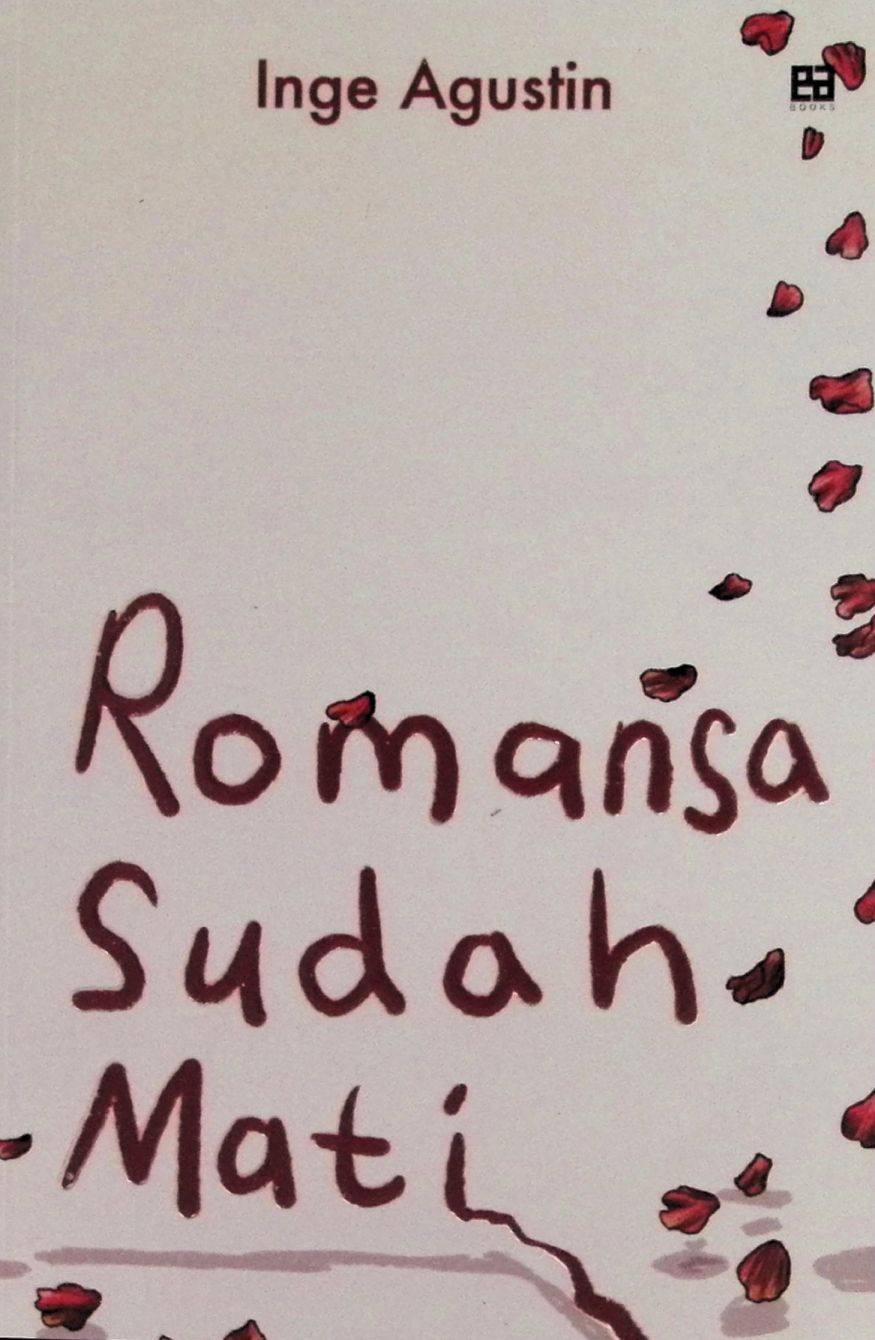 Inge Agustin
ea
BOOKS
Romansa
Sudah
Mati